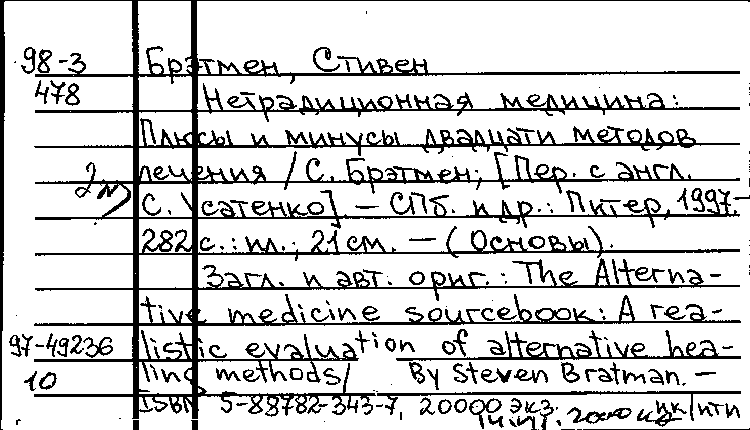 98-3 Брэтмен, Стивен
478 Нетрадиционная медицина:
Плюсы и минусы двадцати методов
лечения / С. Брэтмен; [Пер. с англ.
2 С. Усатенко]. — СПб. и др.: Питер, 1997.—
282 с.: ил.; 21 см. — (Основы).
Загл. и авт. ориг.: The Alterna-
tive medicine sourcebook: A rea-
97-49236 listic evaluation of alternative hea-
10 ling methods/ By Steven Bratman. —
ISBN 5-88782-343-7, 20000 экз.